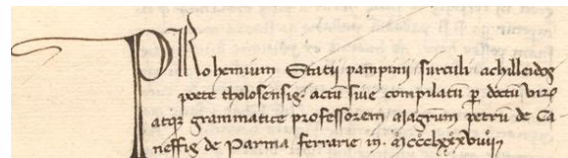 PRohemium Statij pampinij surculi achilleidos
poete tholosensis. actū siue compilatū p doctū virū
atqꝫ grammatice professorem magrūm petrū de Ca
neffis de Parma ferrarie in. Mcccclxxxviiij